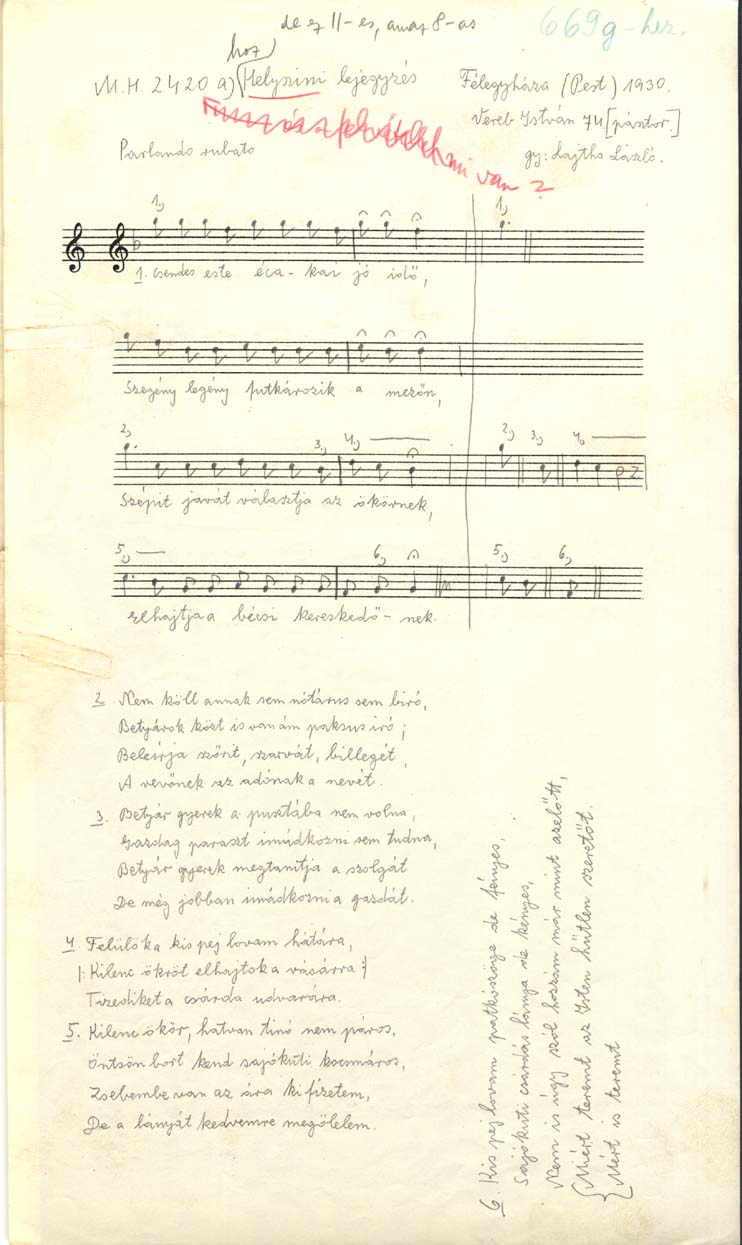 de ez 11-es, amaz 8-as
669g-hez.
hoz
M.H. 2420 a) Helyszini lejegyzés
Félegyháza (Pest) 1930.
Vereb István 74 [pásztor.]
mi van?
Parlando rubato
gy: Lajtha László.
1,) 1,)
1. Csendes este éca-kai jó idő,
Szegény legény futkározik a mezőn,
2, 3,) 4,) 2,) 3,) 4,)
Szépit javát választja az ökörnek,
5,) 6,) 5,) 6,)
Elhajtja a bécsi kereskedő-nek.
2. Nem köll annak sem nótárus sem biró,
Betyárok közt is van ám paksus iró;
Beleírja szőrit, szarvát, billegét,
A vevőnek az adónak a nevét.
3. Betyár gyerek a pusztába nem volna,
Gazdag paraszt imádkozni sem tudna,
Betyár gyerek megtanítja a szolgát
De még jobban imádkozni a gazdát.
4. Felülök a kis pej lovam hátára,
|: Kilenc ökröt elhajtok a vásárra :|
Tizediket a csárda udvarára.
5. Kilenc ökör, hatvan tinó nem páros,
Öntsön bort kend sajókuti kocsmáros,
Zsebembe van az ára ki fizetem,
De a lányát kedvemre megölelem.
6. Kis pej lovam patkószöge de fényes,
Sajókuti csárdás lánya de kényes,
Nem is úgy szól hozzám már mint azelőtt,
Miért teremt az Isten hűtlen szeretőt.
Mért is teremt